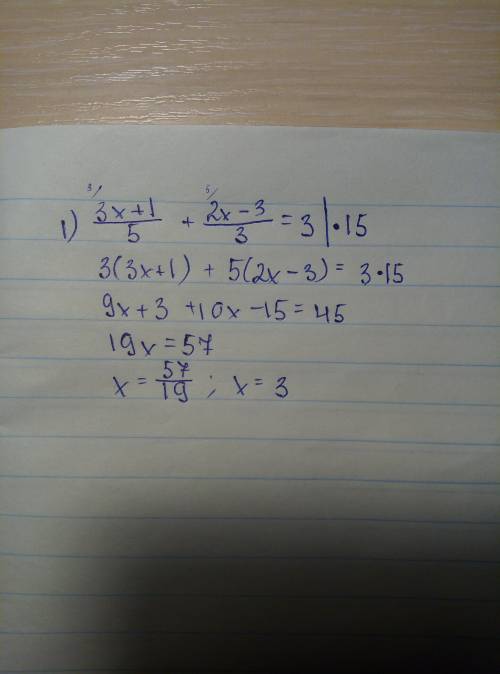 1) 3/ (3x+1)/5 + 5/ (2x-3)/3 = 3 | •15
3(3x+1) + 5(2x-3) = 3•15
9x+3 +10x-15=45
19x=57
x = 57/19 ; x = 3